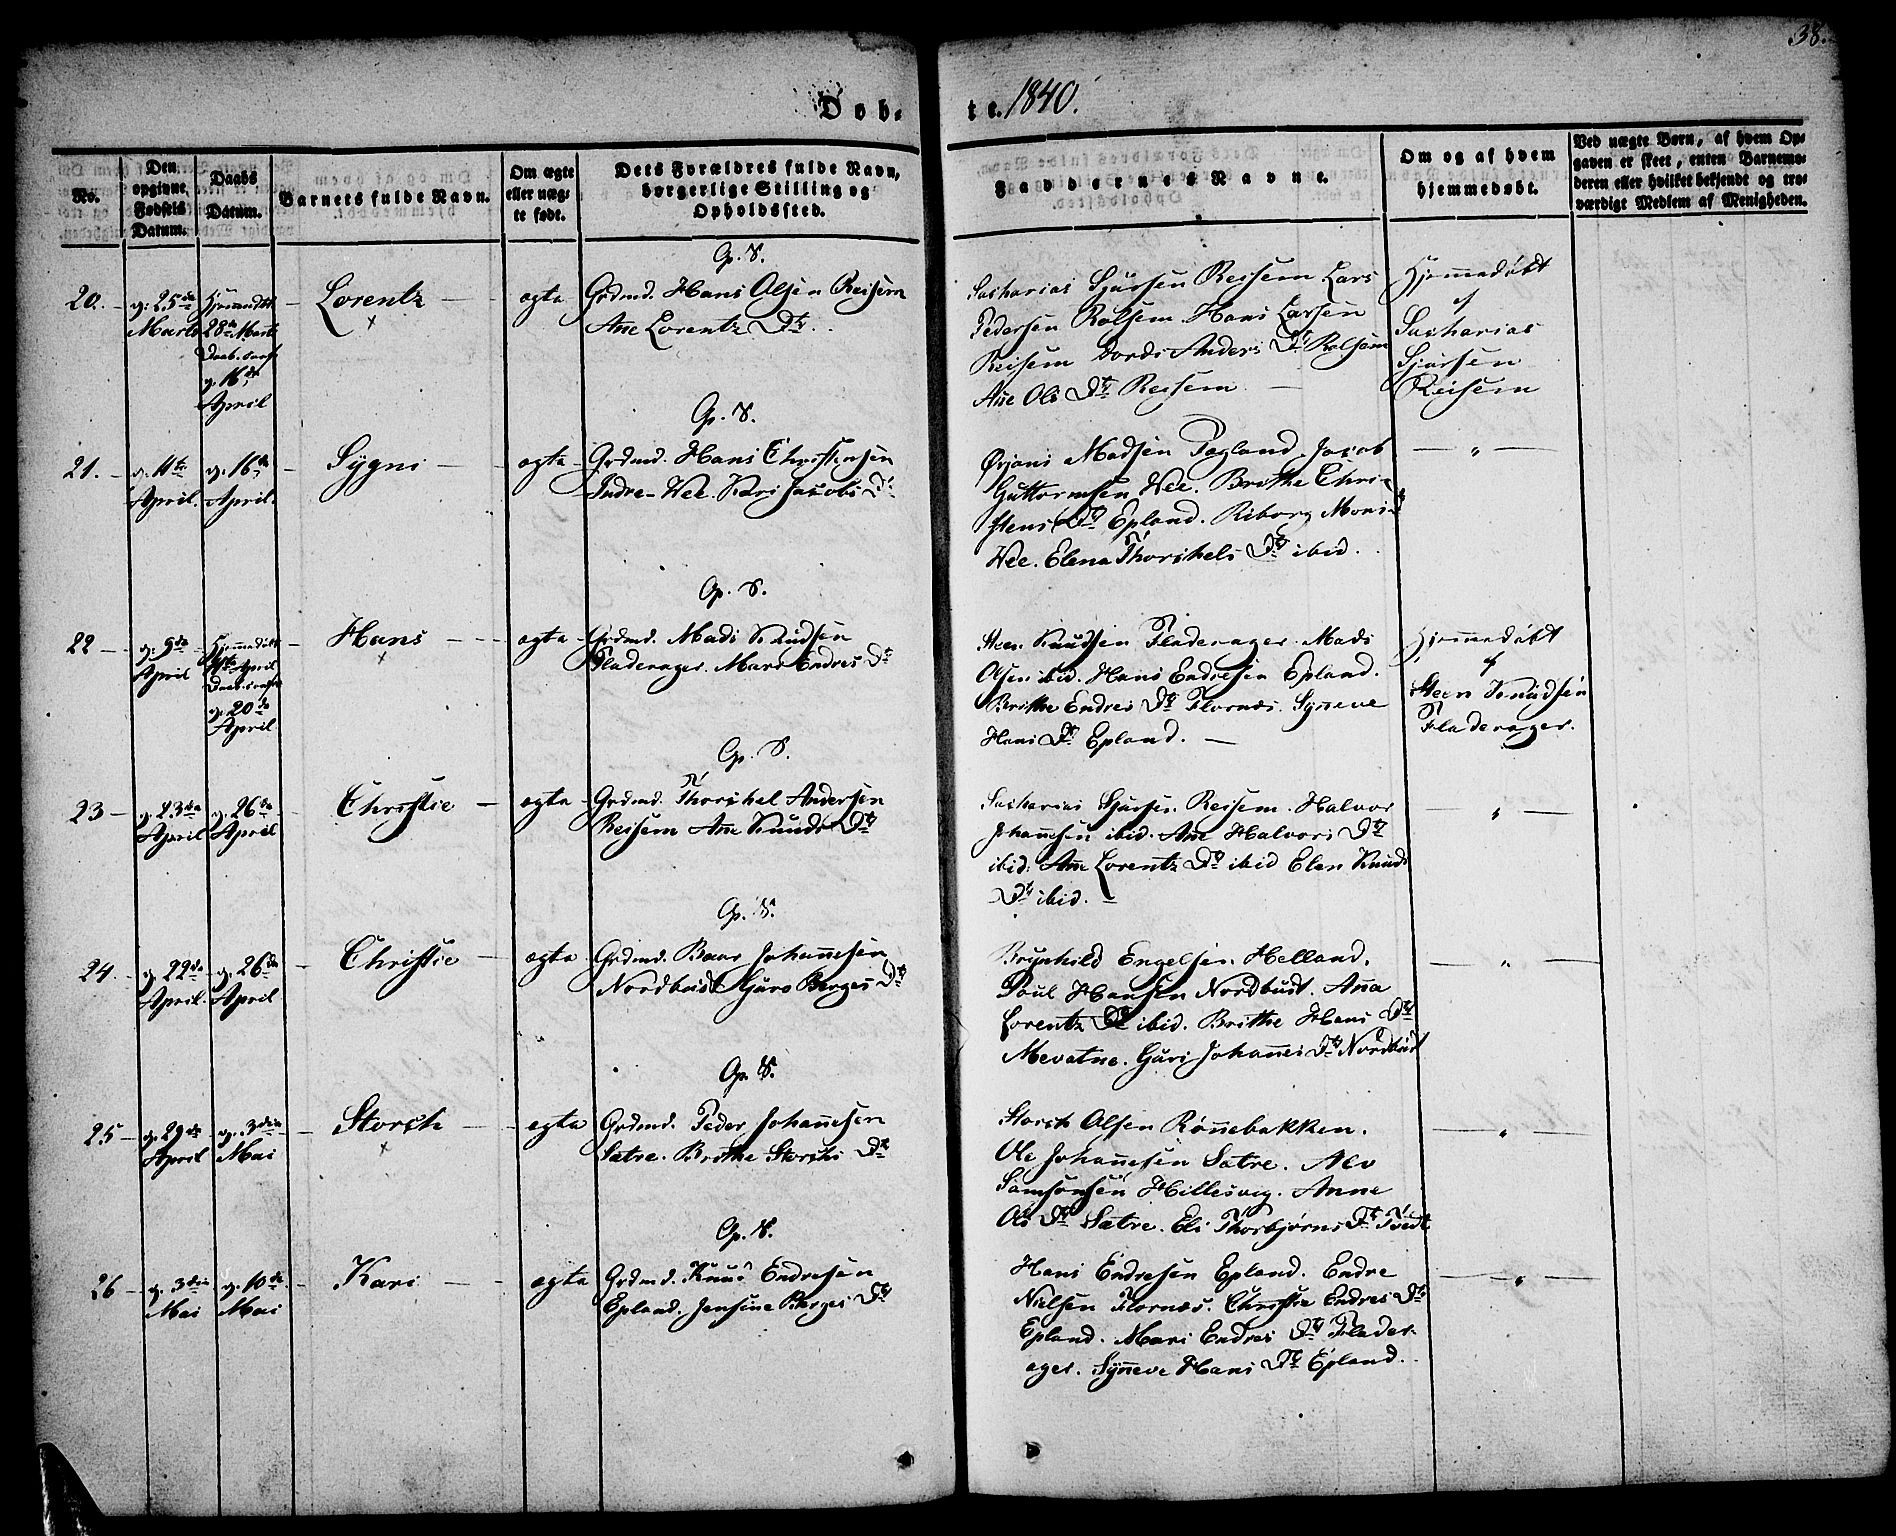 38.
Døb-
te. 1840.
No.
Den
opgivne
Fødsels
Datum.
Daabs
Datum.
Barnets fulde Navn.
Om ægte
eller uæg-
te født.
Dets Forældres fulde Navn,
borgerlige Stilling og
Opholdssted.
Faddernes Navne.
Om og af hvem
hjemmedøbt.
Ved uægte Børn, af hvem Op-
gaven er skeet, enten Barnemo-
deren eller hvilket bekjendt og tro-
værdigt Medlem af Menigheden.
20.
25de
Marts
Hjemmedøbt
28de Marts
16de
April
Lorentz
ægte
Grdmd. Hans Olsen Reisem
Ane Lorentz Dtr.
Sacharias Sjursen Reisem Lars
Pedersen Rolsem Hans Larsen
Reisem Anders Dtr Rolsem
Ane Ols Dtr Reisem
Hjemmedøbt
af
Sacharias
Sjursen
Reisem
21.
11te
April.
16de
April.
Sygni
ægte
Grdmd. Hans Christensen
Indre-Wee. Kari Jacobs Dtr
Ørjans Madsen Fagland Jacob
Guttormsen Wee. Brithe Chri-
stens Dtr Epland. Riborg Mons Dtr
Wee. Elena Thorchels Dtr ibid.
22
9de
April
Hjemmedøbt
April
20de
April
Hans
ægte
Grdmd. Mads Knudsen
Fladerager. Mari Endres Dtr
Steen Knudsen Fladerager. Mads
Olsen ibid. Hans Endresen Epland.
Brithe Endres Dtr Flornæs. Synneve
Hans Dtr Epland.
Hjemmedøbt
af
Steen Knudsen
Fladerager.
23
23de
April
26de
April
Christie
ægte
Grdmd. Thorchel Andersen
Reisem Ane Knuds Dtr
Sacharias Sjursen Reisem. Halvor
Johannesen ibid. Ane Halvors Dtr
ibid. Ane Lorentz Dtr ibid Elen Knuds
Dtr ibid.
24.
22de
April.
26de
April
Christie
ægte
Grdmd. Baar Johannesen
Nordbust Guro Børges Dtr
Brynhild Engelsen Helland.
Poul Hansen Nordbust. Anna
Lorentz Dtr ibid. Brithe Hans Dtr
Mevatne. Guri Johannes Dtr Nordbust
25
29de
April
3die
Mai
Storch
ægte
Grdmd. Peder Johannesen
Sætre. Brithe Storchs Dtr
Storch Olsen Rønnebakken.
Ole Johannesen Sætre. Alv
Samsonsen Hillesvig. Anne
Ols Dtr Sætre. Eli Thorbjørns Dtr Tvedt
26
3die
Mai
10de
Mai
Kari
ægte
Grdmd. Knud Endresen
Epland. Jensine Børges Dtr
Hans Endresen Epland. Endre
Nielsen Flornæs. Christie Endres Dtr
Epland. Mari Endres Dtr Flader-
ager. Synneve Hans Dtr Epland.